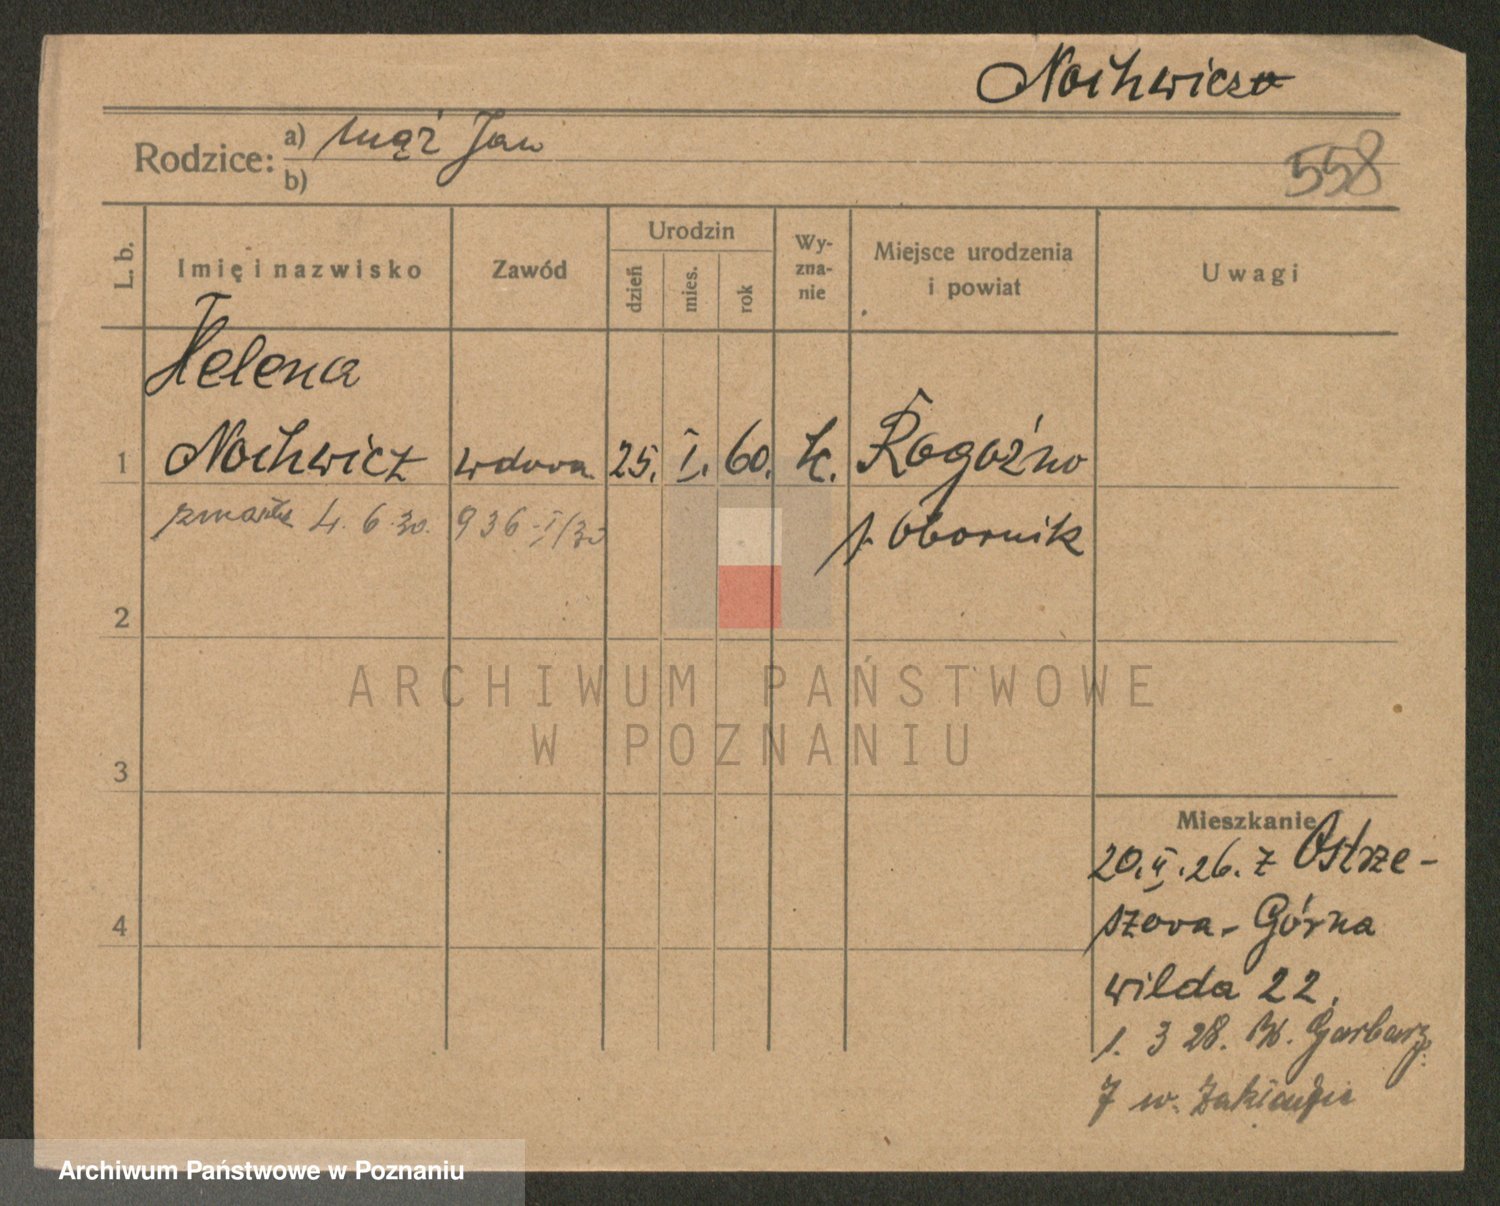 Nochwicz
Rodzice: a) mąż Jan
b)
558
L. b.
Imię i nazwisko
Zawód
Urodzin
dzień
mies.
rok
Wy-
zna-
nie
Miejsce urodzenia
i powiat
Uwagi
Helena
1 Nochwicz wdowa 25. I. 60. k. Rogoźno
zmarła 4. 6. 30. 936-I/30 p. Obornik
2
ARCHIWUM PAŃSTWOWE
W POZNANIU
3
Mieszkanie
20.II.26. z Ostrze-
szowa - Górna
4
wilda 22.
1. 3 28. W. Garbary
7 w.
Archiwum Państwowe w Poznaniu